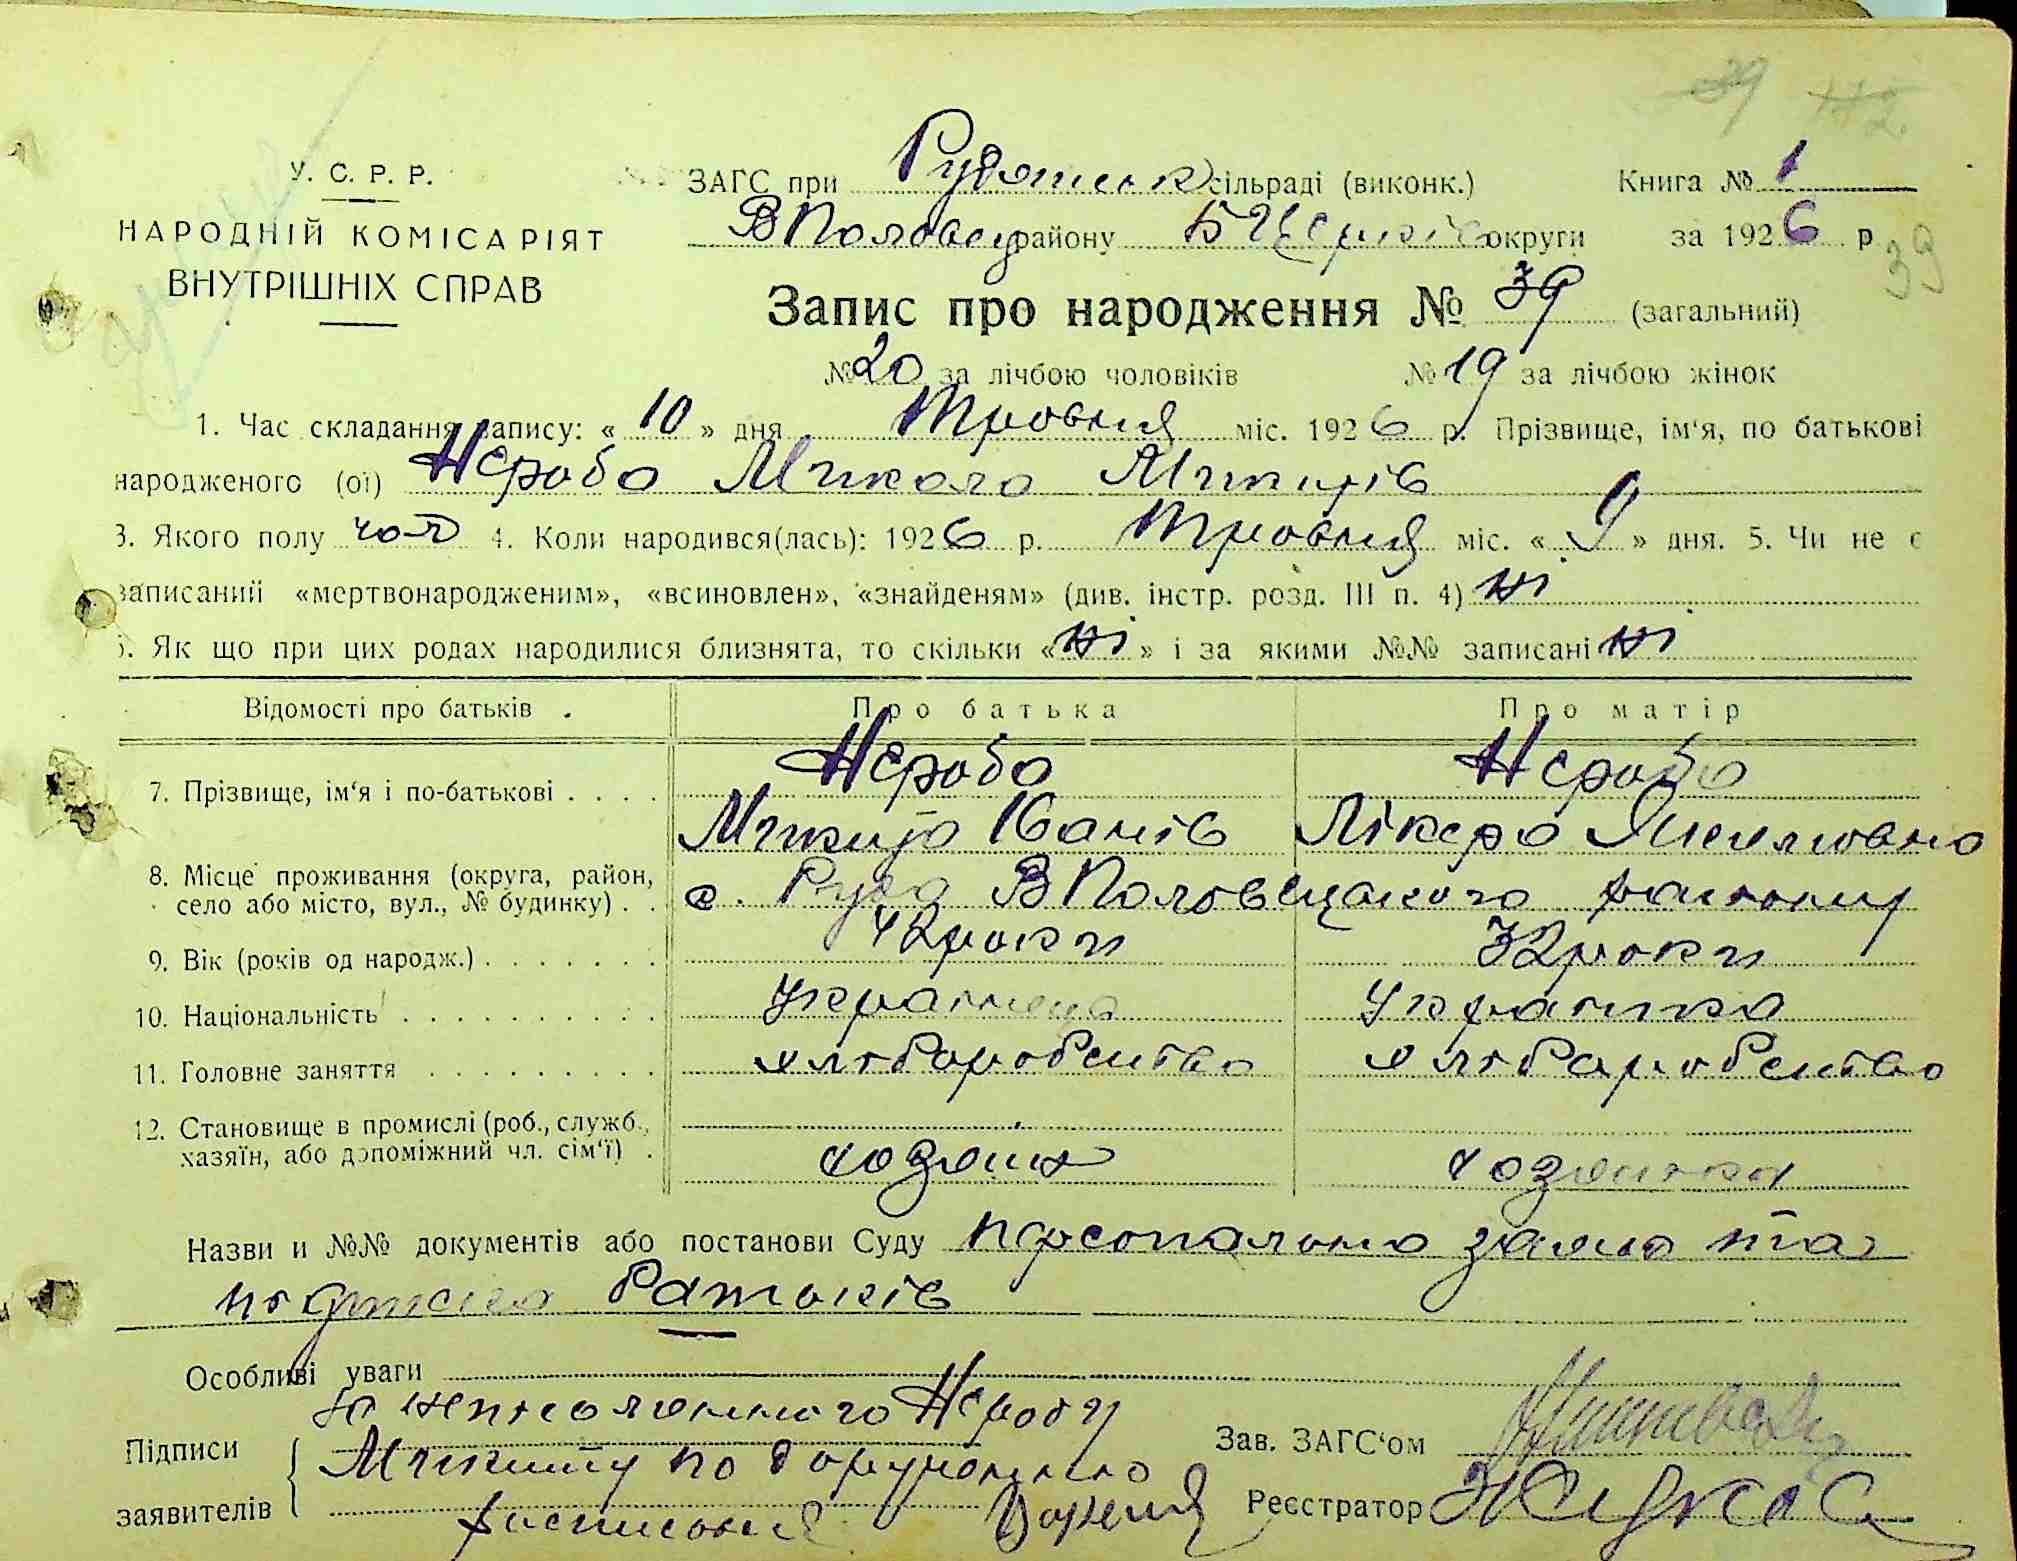 39
У. С. Р. Р.
НАРОДНІЙ КОМІСАРІЯТ
ВНУТРІШНІХ СПРАВ
ЗАГС при Рудянськ сільраді (виконк.) Книга № 1
ВПоловец району БЦерків округи за 1926 р
39
Запис про народження № 39 (загальний)
№ 20 за лічбою чоловіків № 19 за лічбою жінок
1. Час складання запису: « 10 » дня Травня міс. 1926 р. Прізвище, ім'я, по батькові
народженого (ої) Нероба Микола Микитів
3. Якого полу чол 4. Коли народився(лась): 1926 р. Травня міс. « 9 » дня. 5. Чи не є
записаний «мертвонародженим», «всиновлен», «знайденям» (див. інстр. розд. III п. 4) ні
6. Як що при цих родах народилися близнята, то скільки « ні » і за якими №№ записані ні
Відомості про батьків Про батька Про матір
7. Прізвище, ім'я і по-батькові . . . . Нероба Нероба
Микита Іванів Лікера
8. Місце проживання (округа, район,
село або місто, вул., № будинку) . . с. Руда ВПоловецького району
9. Вік (років од народж.) . . . . . . . 42роки 32роки
10. Національність . . . . . . . . . . Українець Українка
11. Головне заняття . . . . . . . . . хліборобство хліборобство
12. Становище в промислі (роб., служб.,
хазяїн, або допоміжний чл. сім'ї) . хазяїн хазяйка
Назви и №№ документів або постанови Суду персональна заява та
батьків
Особливі уваги
За неписьменного Неробу
Підписи Микиту по дорученню Зав. ЗАГС'ом
заявителів Реєстратор